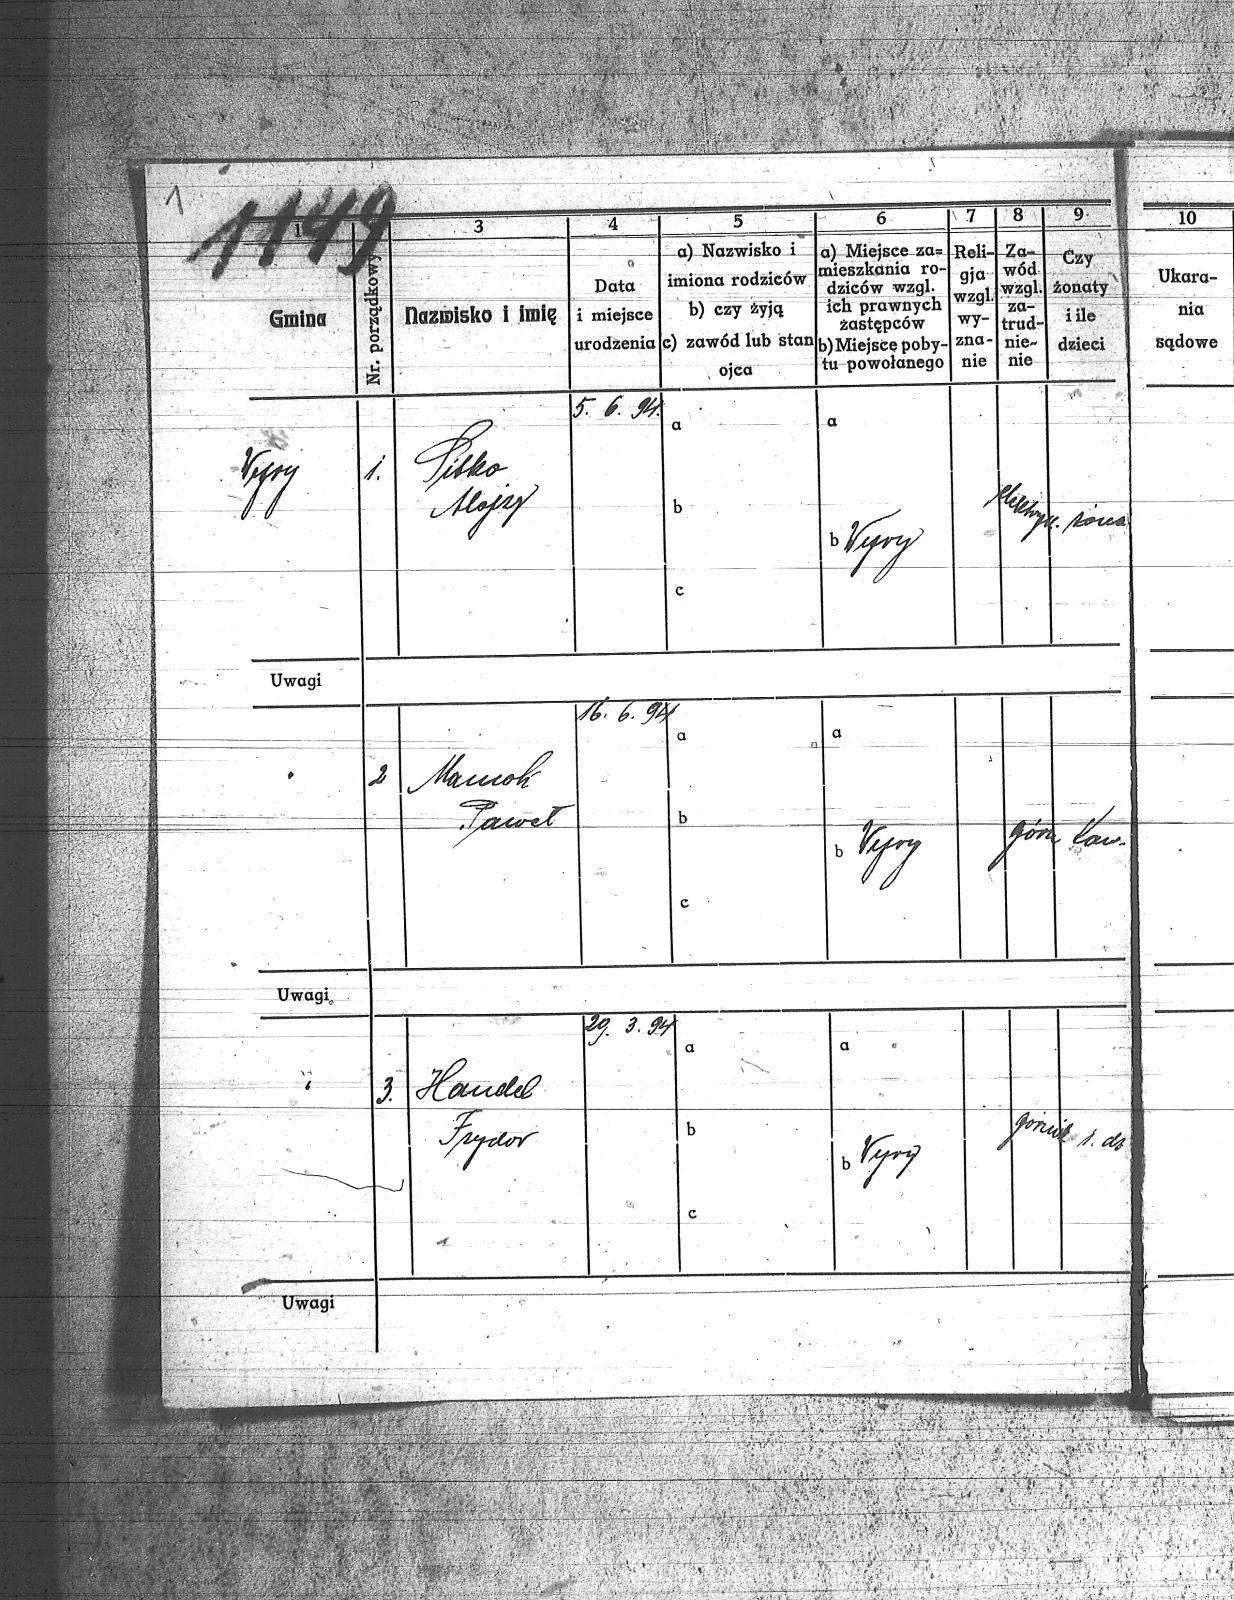 1
1149
1
3
4
5
6
7
8
9
10
Gmina
Nr. porządkowy
Nazwisko i imię
Data
i miejsce
urodzenia
a) Nazwisko i
imiona rodziców
b) czy żyją
c) zawód lub stan
ojca
a) Miejsce za=
mieszkania ro-
dziców wzgl.
ich prawnych
zastępców
b) Miejsce poby-
tu powołanego
Reli-
gja
wzgl.
wy-
zna-
nie
Za-
wód
wzgl.
za-
trud-
nie-
nie
Czy
żonaty
i ile
dzieci
Ukara-
nia
sądowe
Wyry
1.
Alojzy
5. 6. 94.
a
b
c
a
b Wyry
Uwagi
2
Paweł
16. 6. 94
a
b
c
a
b Wyry
Uwagi
3.
Handel
Frydor
29. 3. 94
a
b
c
a
b Wyry
górnik
Uwagi